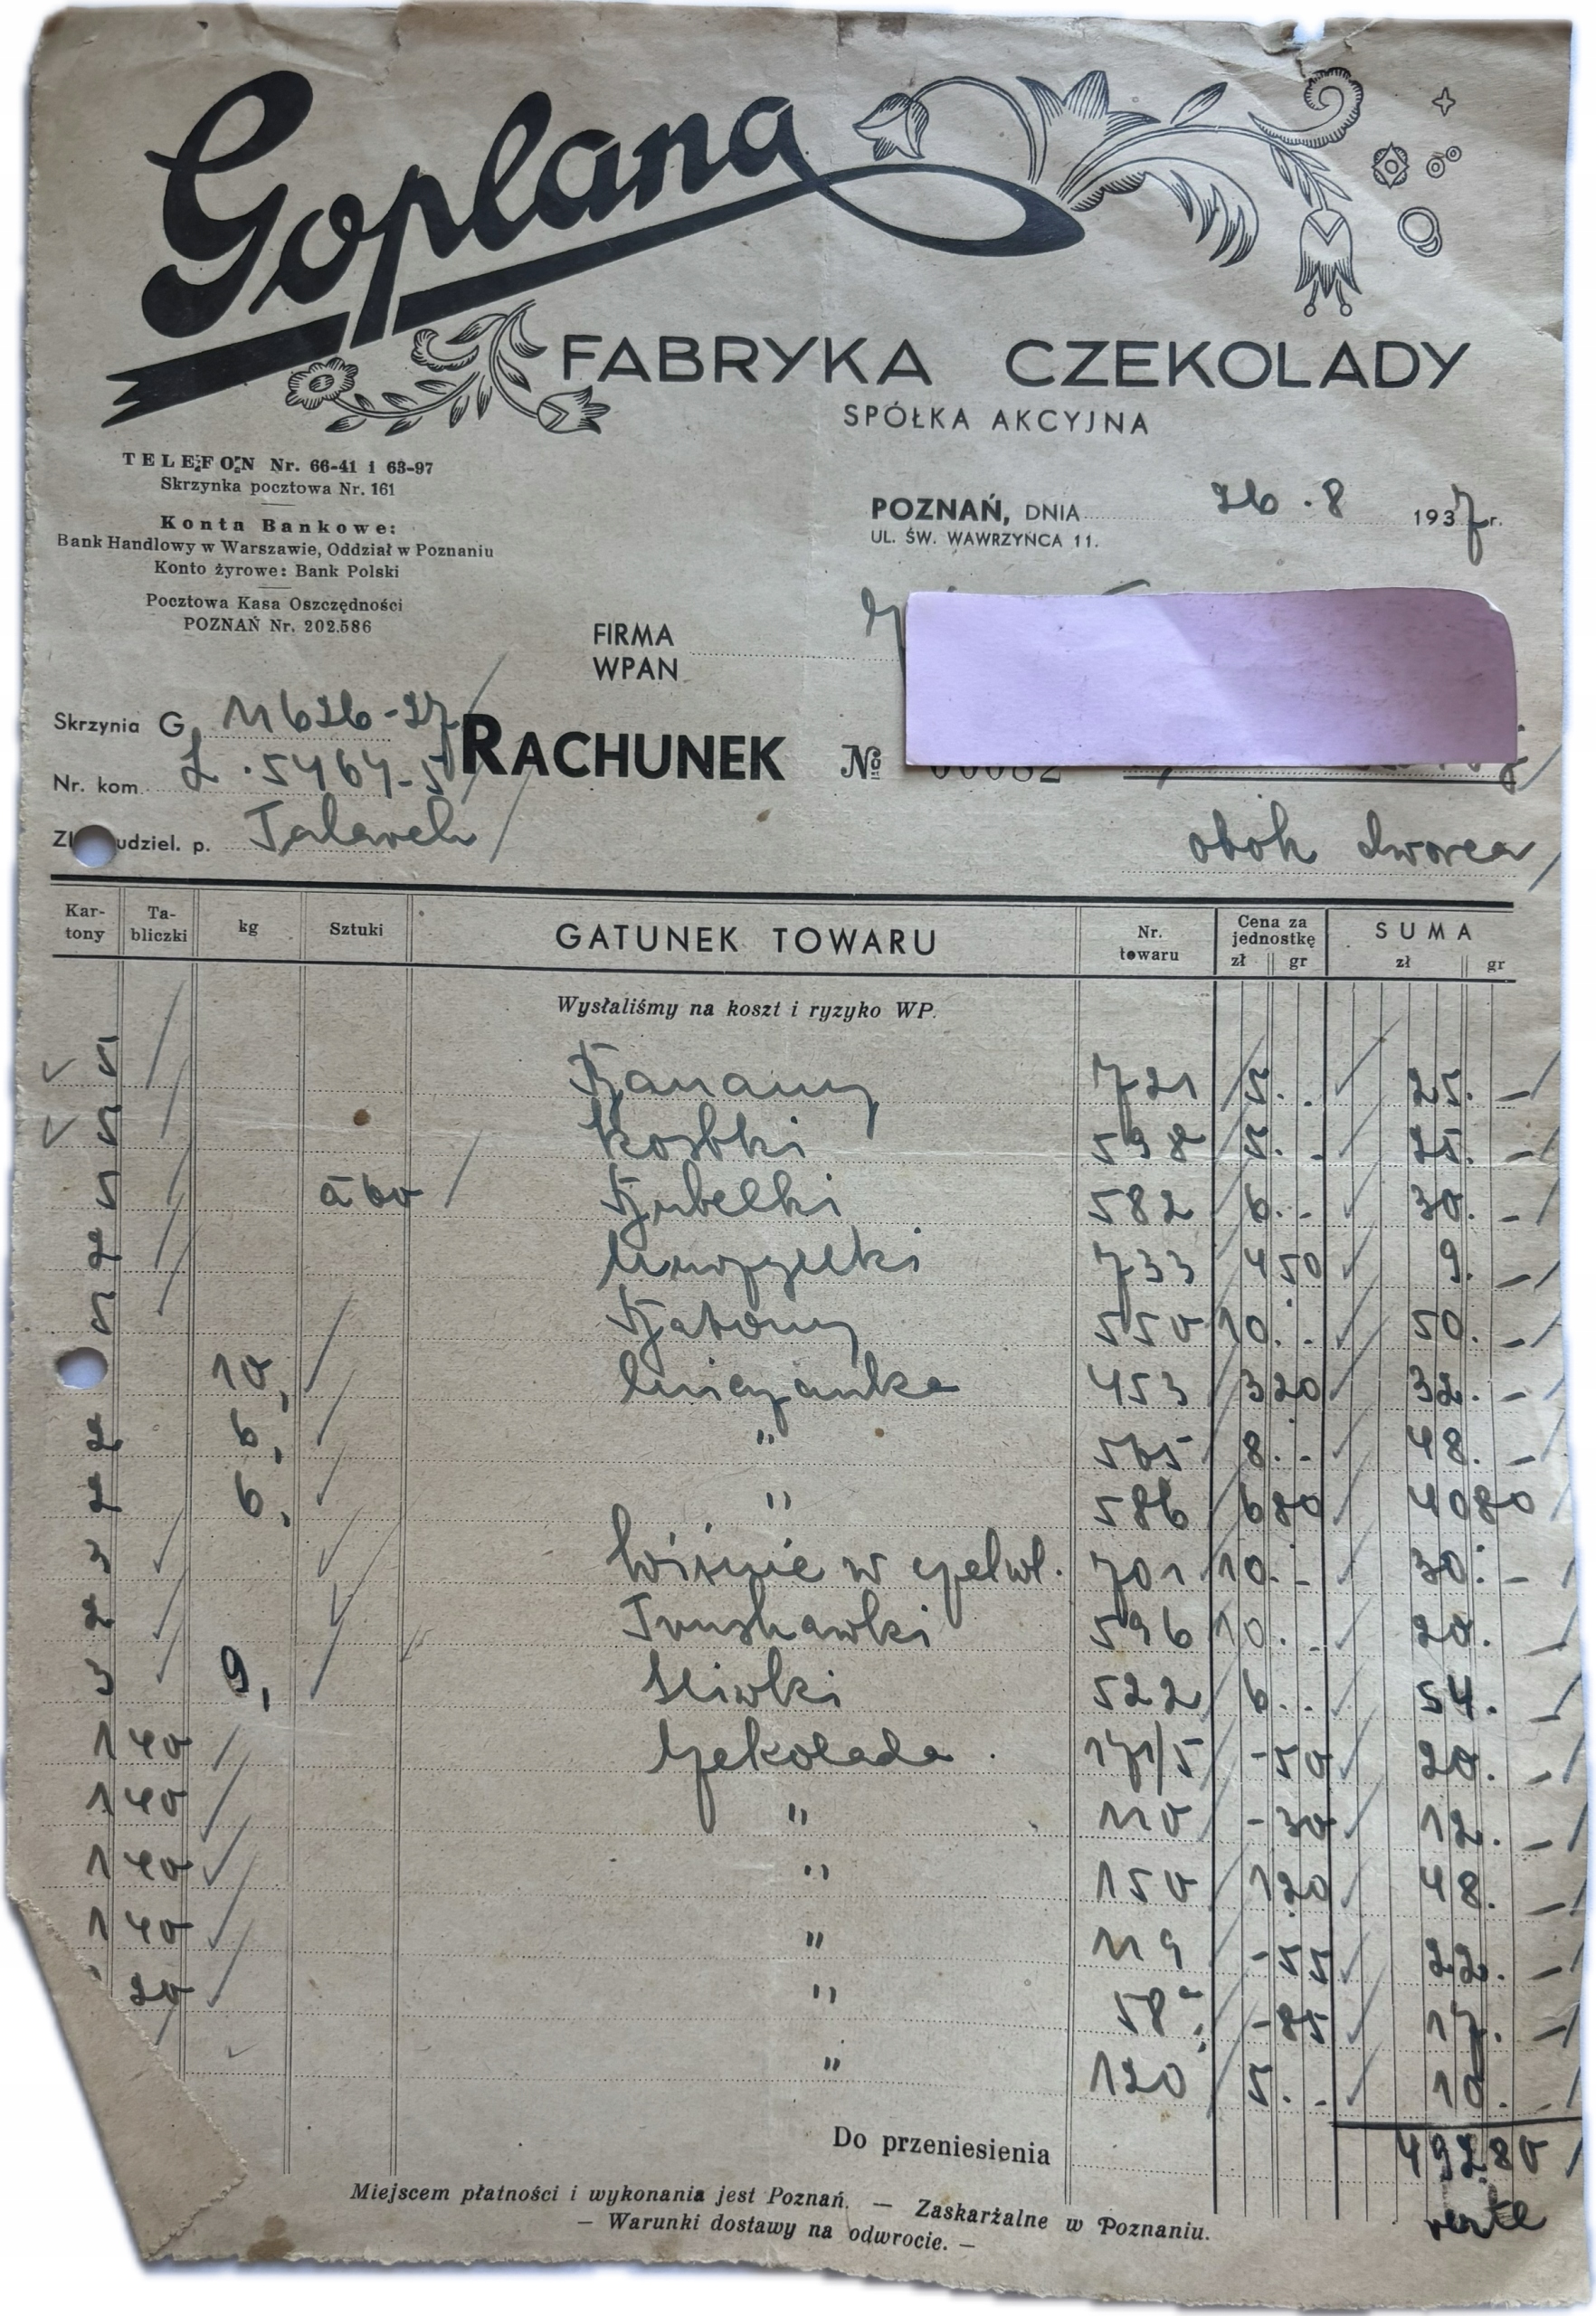 Goplana
FABRYKA CZEKOLADY
SPÓŁKA AKCYJNA
TELEFON Nr. 66-41 i 63-97
Skrzynka pocztowa Nr. 161
Konta Bankowe:
Bank Handlowy w Warszawie, Oddział w Poznaniu
Konto żyrowe: Bank Polski
Pocztowa Kasa Oszczędności
POZNAŃ Nr. 202.586
POZNAŃ, DNIA 26.8 1937 r.
UL. ŚW. WAWRZYŃCA 11.
FIRMA
WPAN
Skrzynia G 11626-27
RACHUNEK № 00082
Nr. kom. 5464-5
udziel. p.
obok dworca
Kartony Tabliczki kg Sztuki GATUNEK TOWARU Nr. towaru Cena za jednostkę zł gr SUMA zł gr
Wysłaliśmy na koszt i ryzyko WP.
5 Banany 721 5.- 25.-
5 Kostki 598 5.- 25.-
5 à 60 582 6.- 30.-
2 733 4 50 9.-
5 550 10.- 50.-
10, 453 3 20 32.-
2 6, " 565 8.- 48.-
2 6, " 586 6 80 40 80
3 Wiśnie w czekol. 701 10.- 30.-
2 Truskawki 596 10.- 20.-
3 9, Śliwki 522 6.- 54.-
1 40 Czekolada 171/5 -50 20.-
1 40 " 110 -30 12.-
1 40 " 150 1 20 48.-
1 40 " 119 -55 22.-
20 " 58 -85 17.-
" 120 5.- 10.-
Do przeniesienia 492 80
verte
Miejscem płatności i wykonania jest Poznań. — Zaskarżalne w Poznaniu.
— Warunki dostawy na odwrocie. —